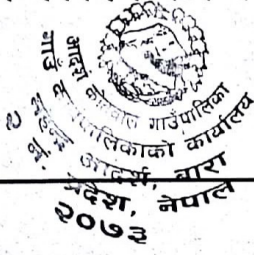 आदर्श कोतवाल गाउँपालिका
गाउँ कार्यपालिकाको कार्यालय
आदर्श, बारा
२ नं. प्रदेश, नेपाल
२०७३